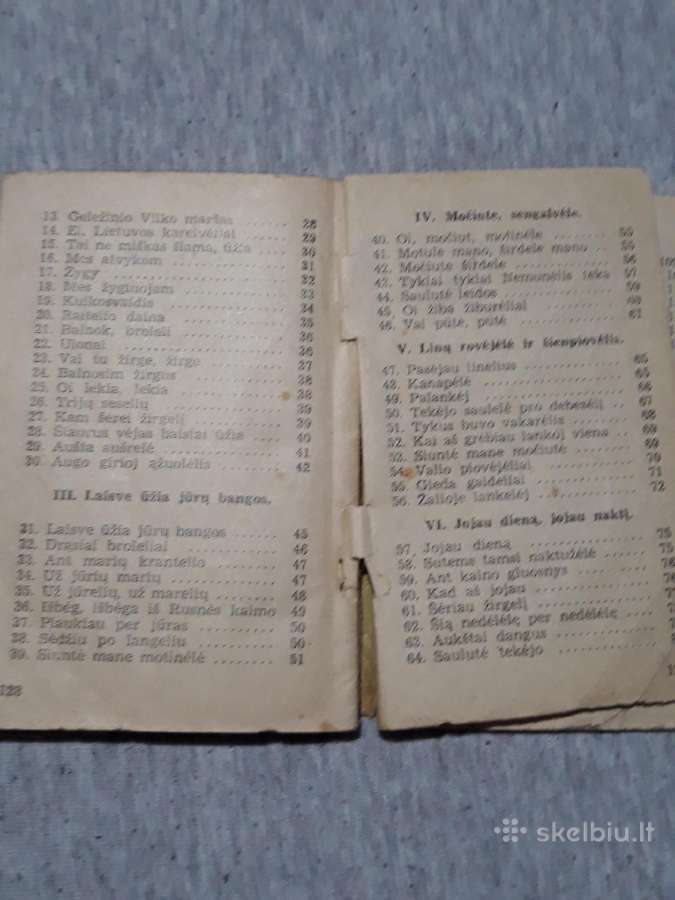 13. Geležinio Vilko maršas ........ 28
14. Ei, Lietuvos kareivėliai ........ 29
15. Tai ne miškas šlama, ūžia ........ 30
16. Mes atvykom ........ 31
17. Žygy ........ 32
18. Mes žygiuojam ........ 33
19. Kulkosvaidis ........ 34
20. Raitelio daina ........ 35
21. Balnok, broleli ........ 36
22. Ulonai ........ 36
23. Vai tu žirge, žirge ........ 37
24. Balnosim žirgus ........ 38
25. Oi lekia, lekia ........ 38
26. Trijų seselių ........ 39
27. Kam šerei žirgelį ........ 39
28. Šiaurus vėjas baisiai ūžia ........ 40
29. Aušta aušrelė ........ 41
30. Augo girioj ąžuolėlis ........ 42
III. Laisve ūžia jūrų bangos.
31. Laisve ūžia jūrų bangos ........ 45
32. Drąsiai broleliai ........ 46
33. Ant marių krantelio ........ 47
34. Už jūrių marių ........ 47
35. Už jūrelių, už marelių ........ 48
36. Išbėg, išbėga iš Rusnės kaimo 49
37. Plaukiau per jūras ........ 50
38. Sėdžiu po langeliu ........ 50
39. Siuntė mane motinėlė ........ 51
122
IV. Močiute, sengalvėle.
40. Oi, močiut, motinėle ........ 55
41. Motule mano, širdele mano .. 55
42. Močiute širdele ........ 56
43. Tykiai tykiai Nemunėlis teka 57
44. Saulutė leidos ........
45. Oi žiba žiburėliai ........ 60
46. Vai pūtė, pūtė ........ 61
V. Linų rovėjėlė ir šienpiovėlis.
47. Pasėjau linelius ........ 65
48. Kanapėlė ........ 65
49. Palankėj ........ 66
50. Tekėjo saulelė pro debesėlį .. 67
51. Tykus buvo vakarėlis ........ 68
52. Kai aš grėbiau lankoj viena .. 69
53. Siuntė mane močiutė ........ 69
54. Valio piovėjėliai ........ 70
55. Gieda gaideliai ........ 71
56. Žalioje lankelėj ........ 72
VI. Jojau dieną, jojau naktį.
57. Jojau dieną ........ 75
58. Sutems tamsi naktužėlė ........ 75
59. Ant kalno gluosnys ........ 76
60. Kad aš jojau ........
61. Šėriau žirgelį ........
62. Šią nedėlėlę per nedėlėlę ..
63. Aukštai dangus ........
64. Saulutė tekėjo ........
skelbiu.lt